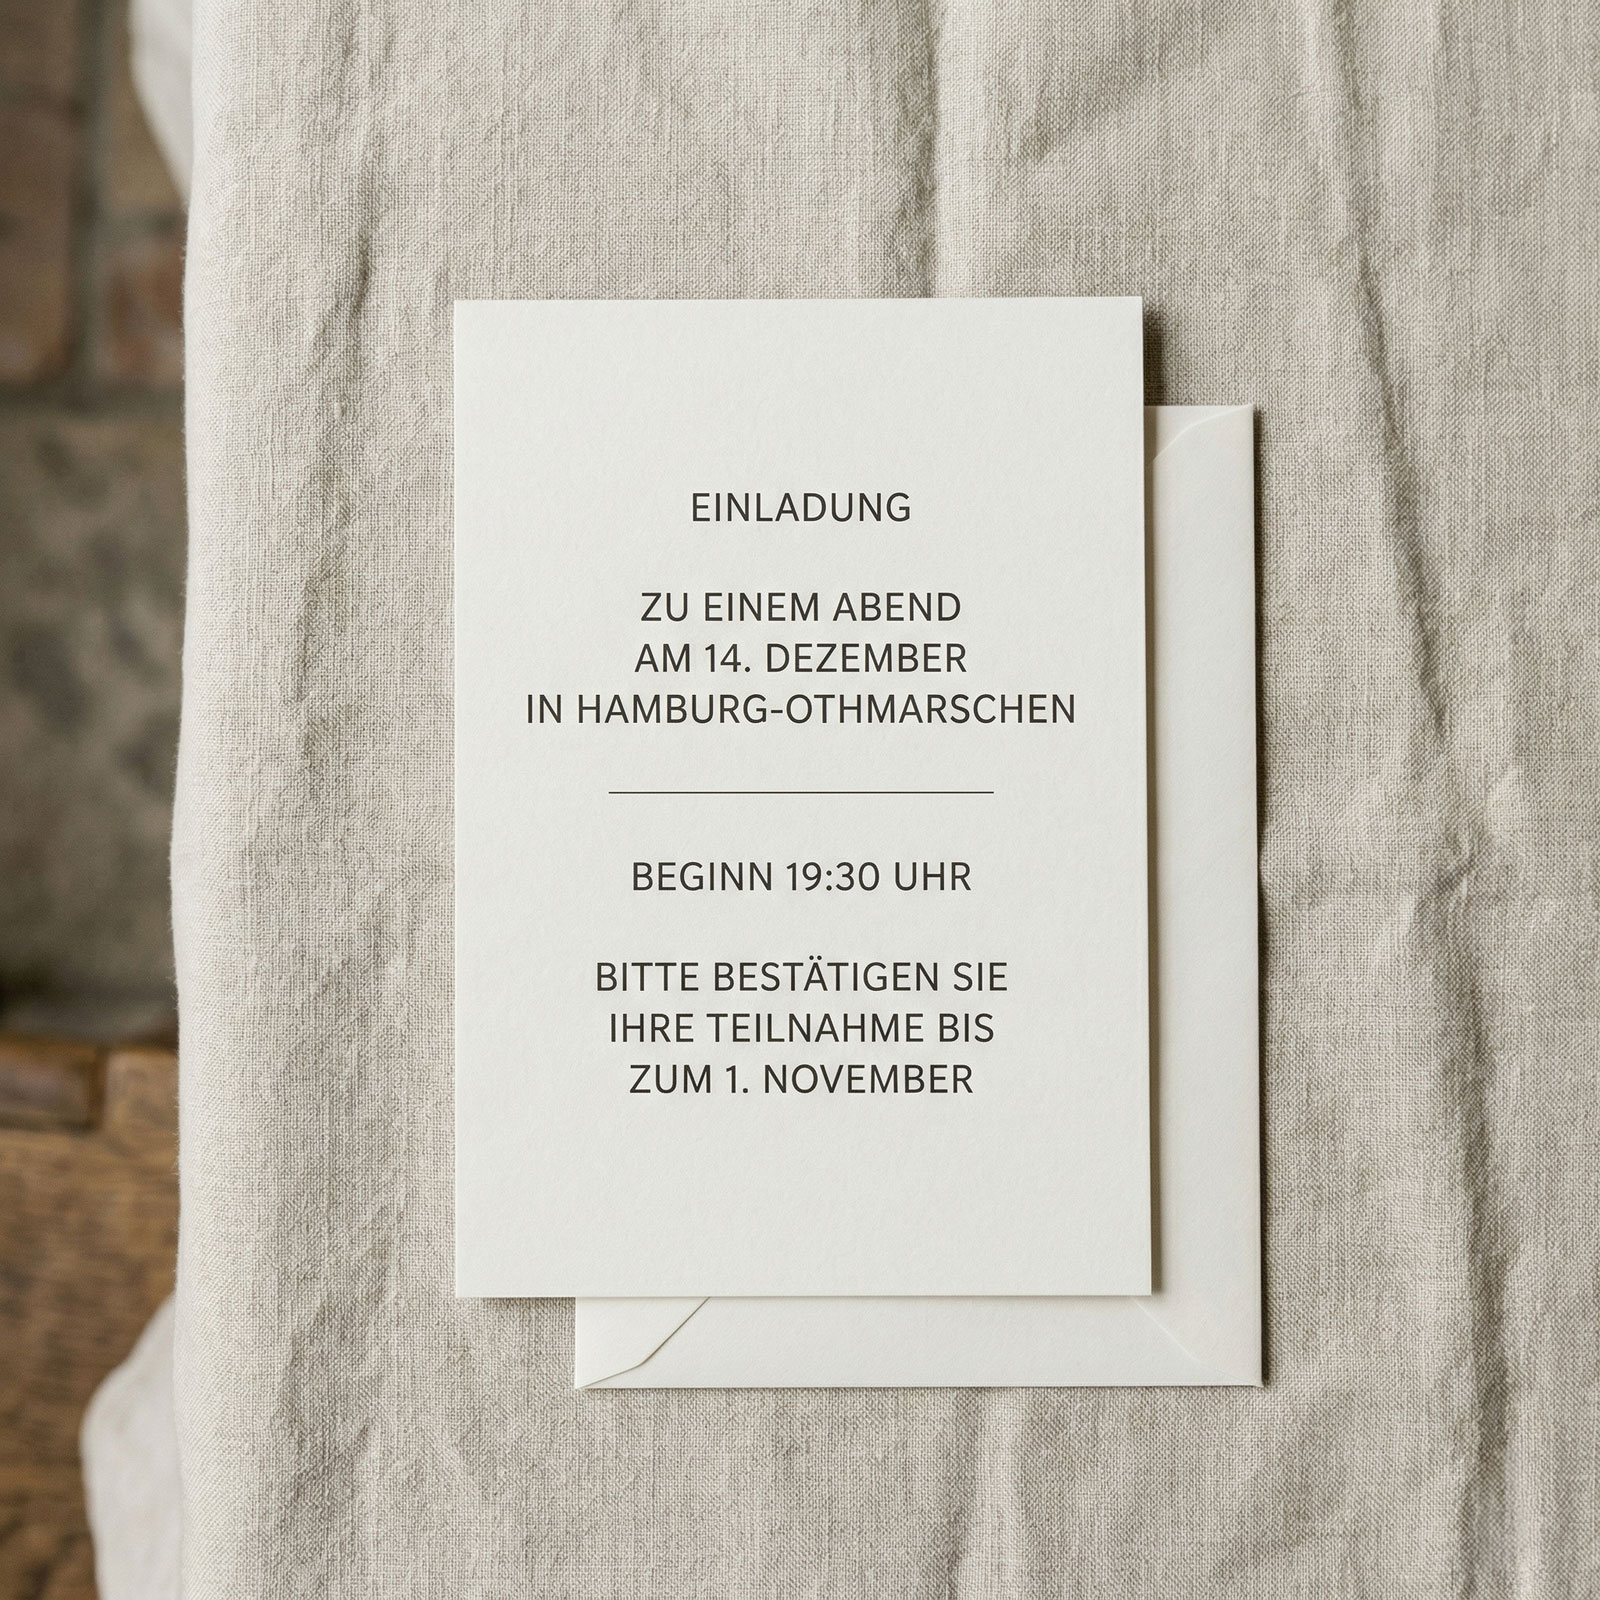 EINLADUNG
ZU EINEM ABEND
AM 14. DEZEMBER
IN HAMBURG-OTHMARSCHEN
BEGINN 19:30 UHR
BITTE BESTÄTIGEN SIE
IHRE TEILNAHME BIS
ZUM 1. NOVEMBER